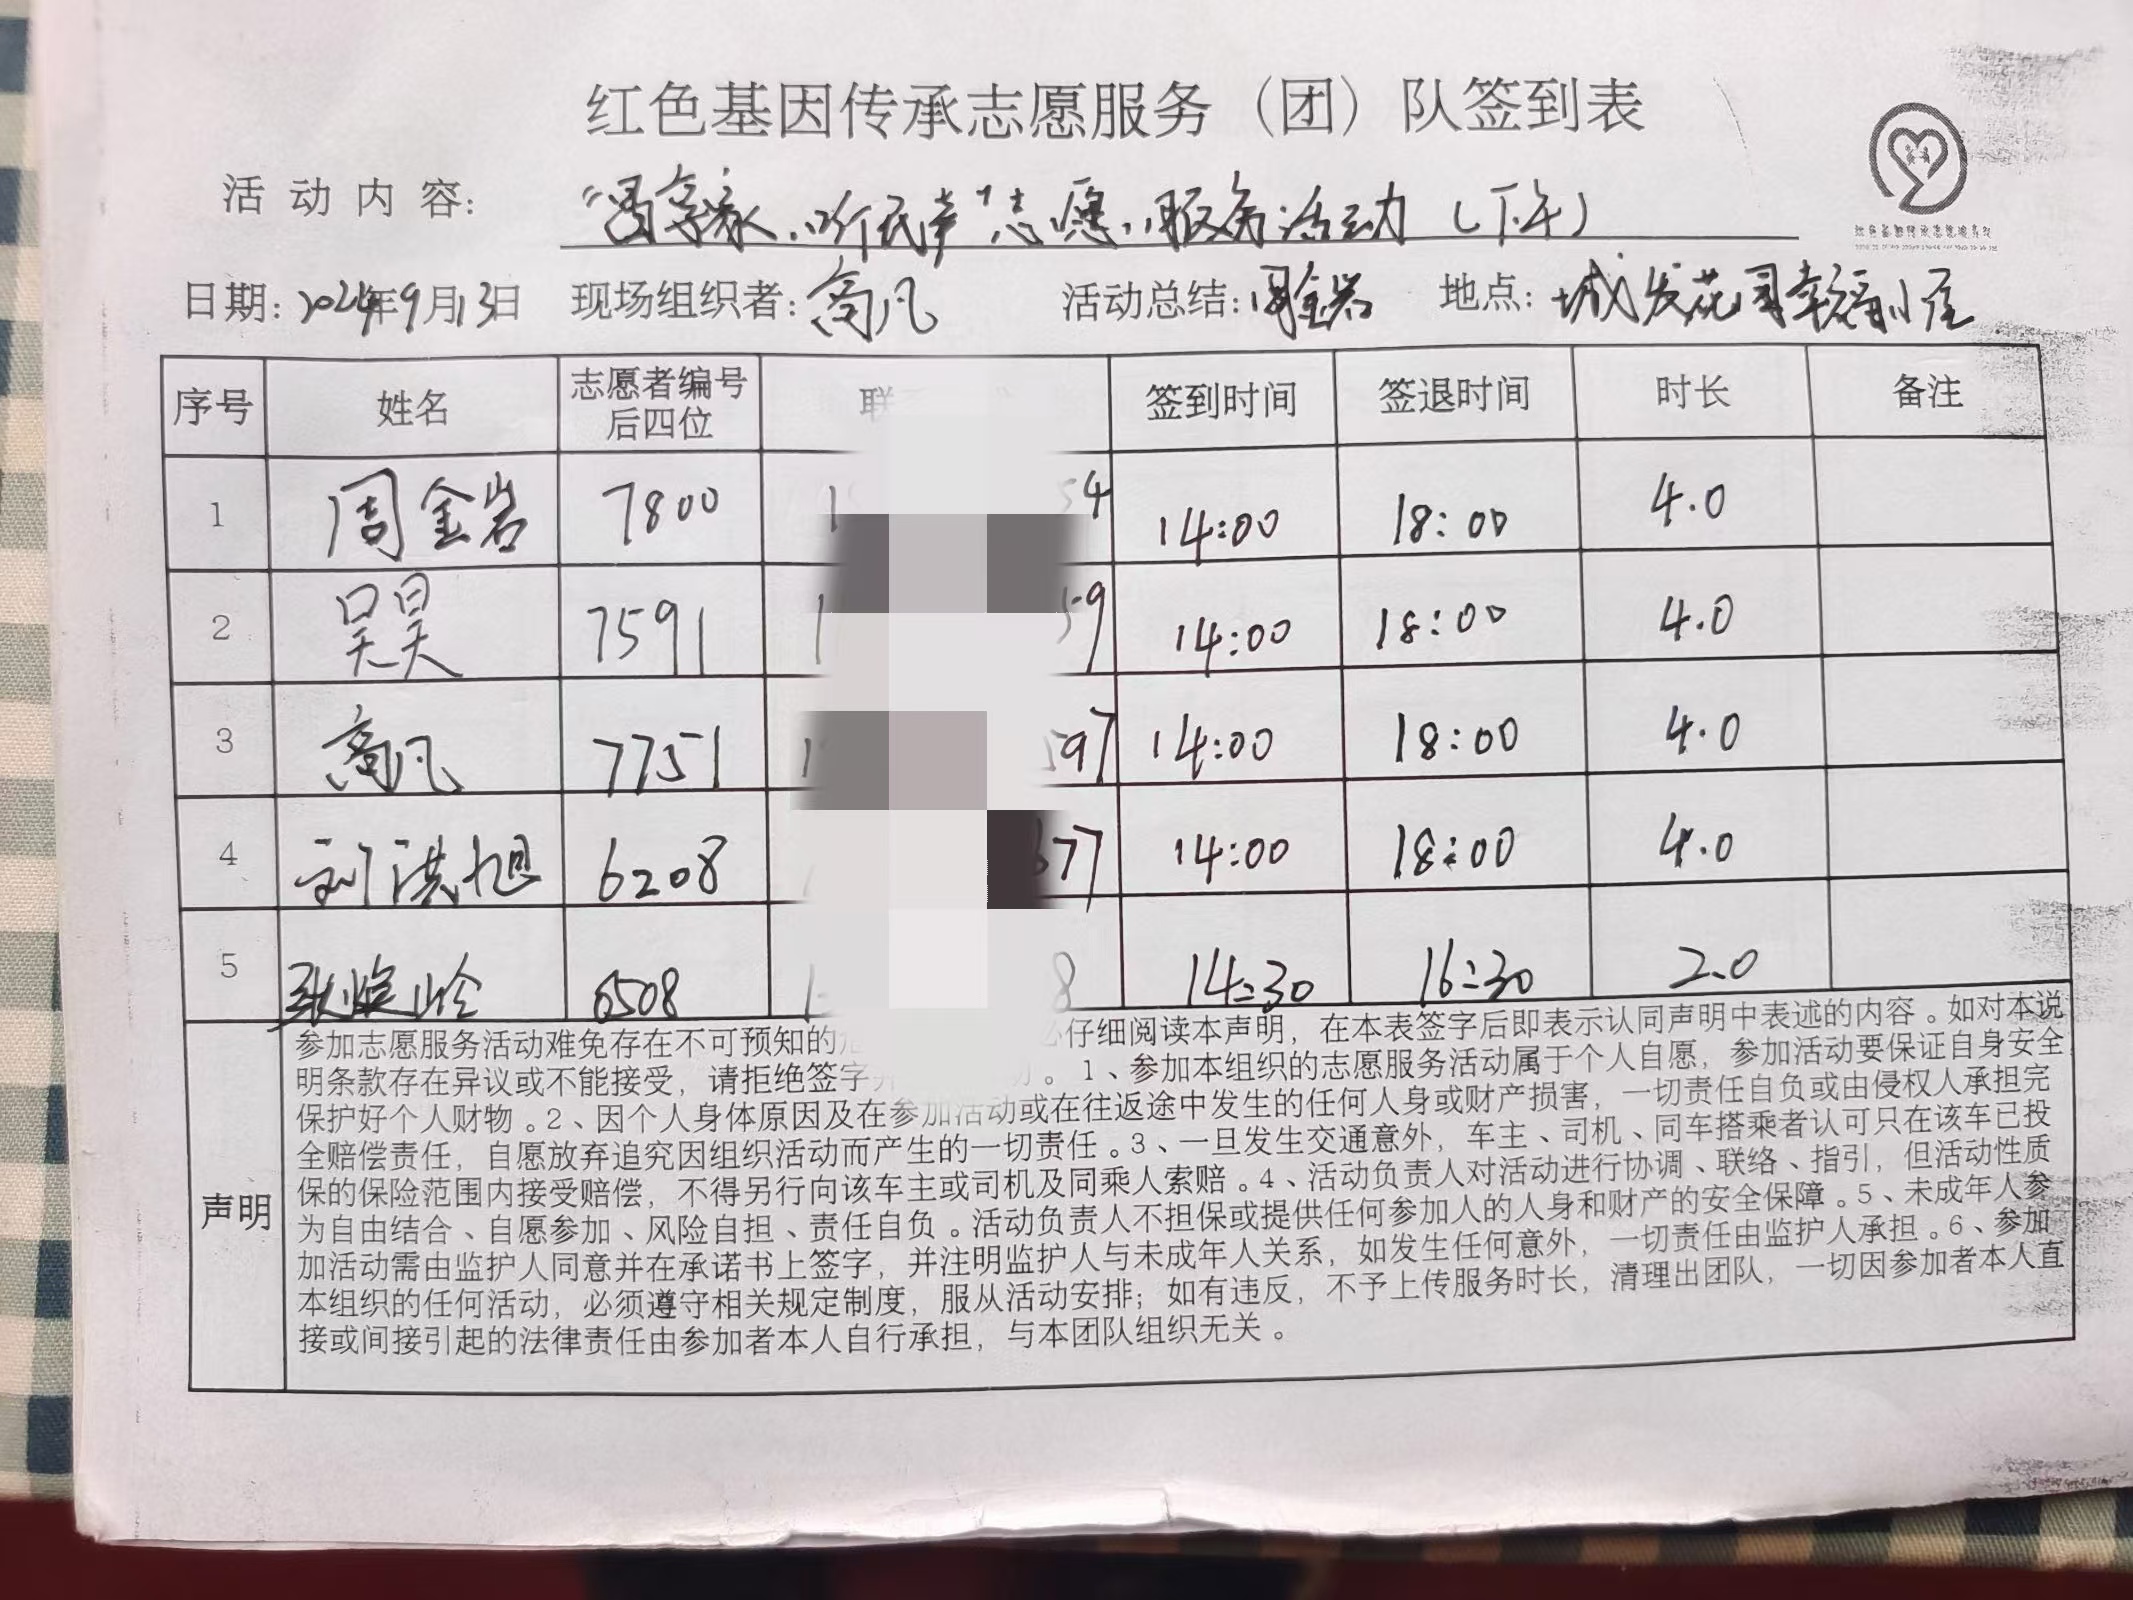 红色基因传承志愿服务（团）队签到表
活动内容：听民声"志愿服务活动（下午）
日期：2024年9月13日 现场组织者：高凡 活动总结：周金岩 地点：城发花园幸福小屋
序号 姓名 志愿者编号后四位 联 签到时间 签退时间 时长 备注
1 周金岩 7800 1 54 14:00 18:00 4.0
2 吴昊 7591 1 59 14:00 18:00 4.0
3 高凡 7751 1 597 14:00 18:00 4.0
4 刘洪旭 6208 677 14:00 18:00 4.0
5 6508 1 8 14:30 16:30 2.0
声明
参加志愿服务活动难免存在不可预知的 仔细阅读本声明，在本表签字后即表示认同声明中表述的内容。如对本说
明条款存在异议或不能接受，请拒绝签字 。1、参加本组织的志愿服务活动属于个人自愿，参加活动要保证自身安全
保护好个人财物。2、因个人身体原因及在参加活动或在往返途中发生的任何人身或财产损害，一切责任自负或由侵权人承担完
全赔偿责任，自愿放弃追究因组织活动而产生的一切责任。3、一旦发生交通意外，车主、司机、同车搭乘者认可只在该车已投
保的保险范围内接受赔偿，不得另行向该车主或司机及同乘人索赔。4、活动负责人对活动进行协调、联络、指引，但活动性质
为自由结合、自愿参加、风险自担、责任自负。活动负责人不担保或提供任何参加人的人身和财产的安全保障。5、未成年人参
加活动需由监护人同意并在承诺书上签字，并注明监护人与未成年人关系，如发生任何意外，一切责任由监护人承担。6、参加
本组织的任何活动，必须遵守相关规定制度，服从活动安排；如有违反，不予上传服务时长，清理出团队，一切因参加者本人直
接或间接引起的法律责任由参加者本人自行承担，与本团队组织无关。